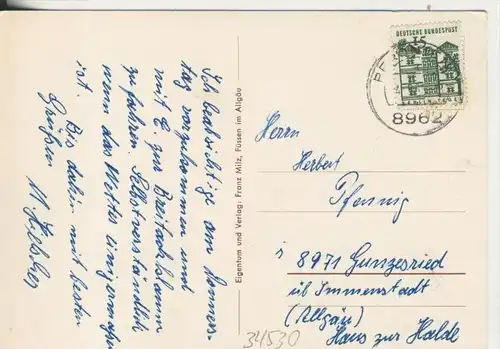 Ich beabsichtige am Donners-
tag vorzukommen und
mit E. zur Breitachklamm
zu fahren. Selbstverständlich
wenn das Wetter einigermaßen
ist.
Bis dahin mit besten
Grüßen
Eigentum und Verlag: Franz Milz, Füssen im Allgäu
DEUTSCHE BUNDESPOST
15
8962
Herrn
Herbert
Pfennig
8971 Gunzesried
üb Immenstadt
(Allgäu)
Haus zur Halde
34530